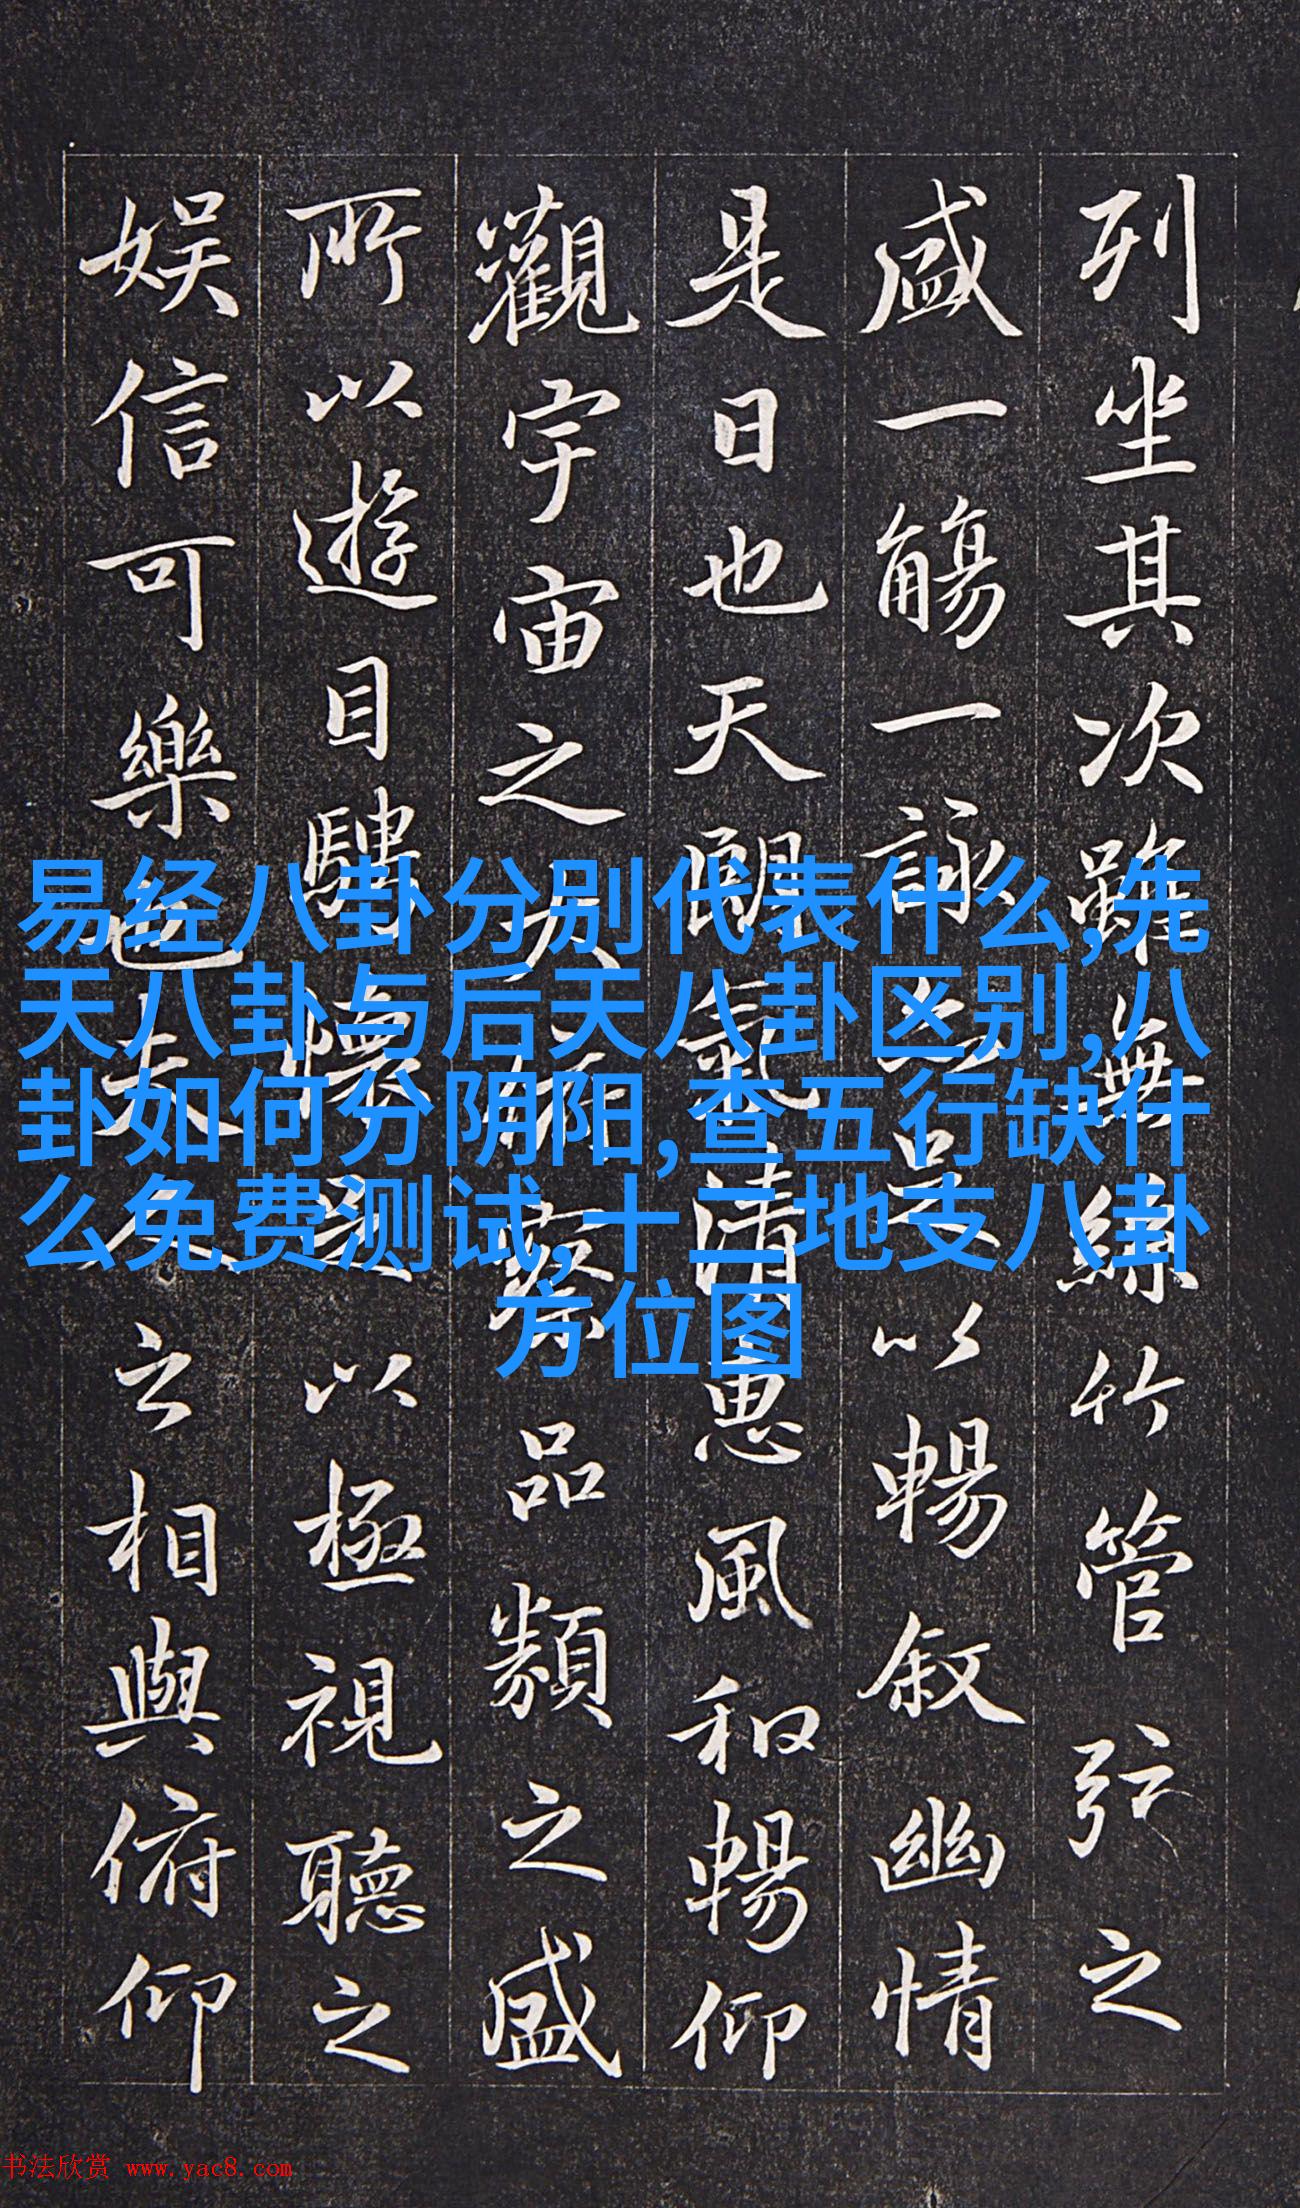 列坐其次雖無絲竹管弦之
盛一觴一詠亦足以暢叙幽情
是日也天朗氣清惠風和暢仰
觀宇宙之大俯察品類之盛
所以遊目騁懷足以極視聽之
娱信可樂也夫人之相與俯仰
易经八卦分别代表什么,先
天八卦与后天八卦区别,八
卦如何分阴阳,查五行缺什
么免费测试,十二地支八卦
方位图
书法欣赏 www.yac8.com